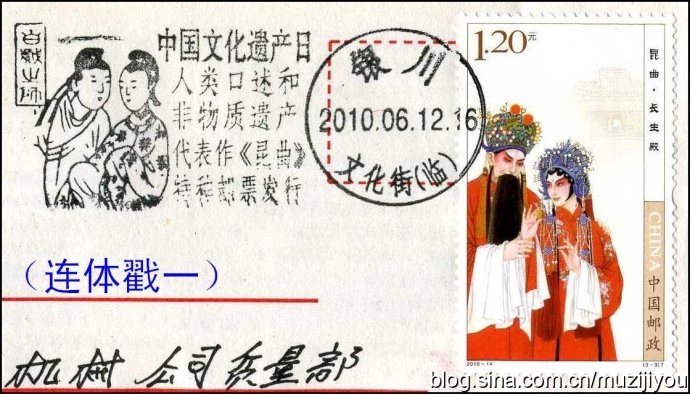 中国文化遗产日
人类口述和
非物质遗产
代表作《昆曲》
特种邮票发行
银川
2010.06.12.16
文化街(临)
1.20元
昆曲·长生殿
CHINA
中国邮政
2010-14
(3-3)T
(连体戳一)
机械公司质量部
blog.sina.com.cn/muzijiyou